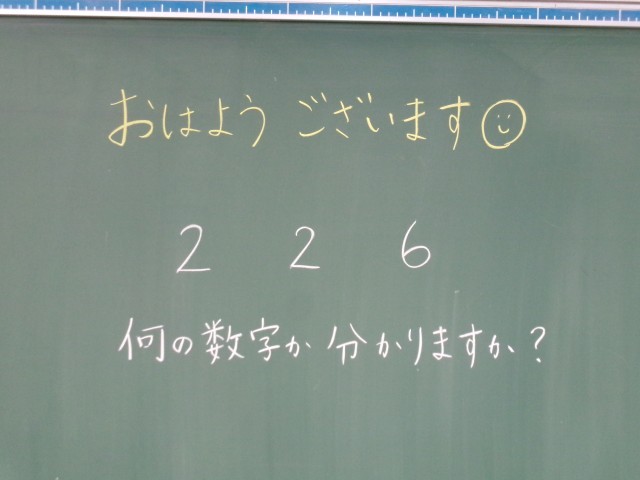 おはよう ございます
2 2 6
何の数字か 分かりますか?